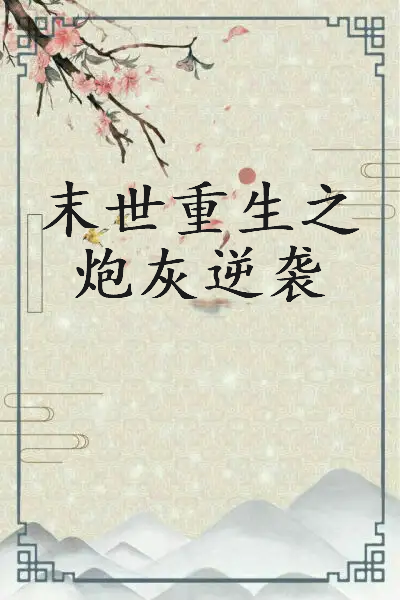 末世重生之
炮灰逆袭